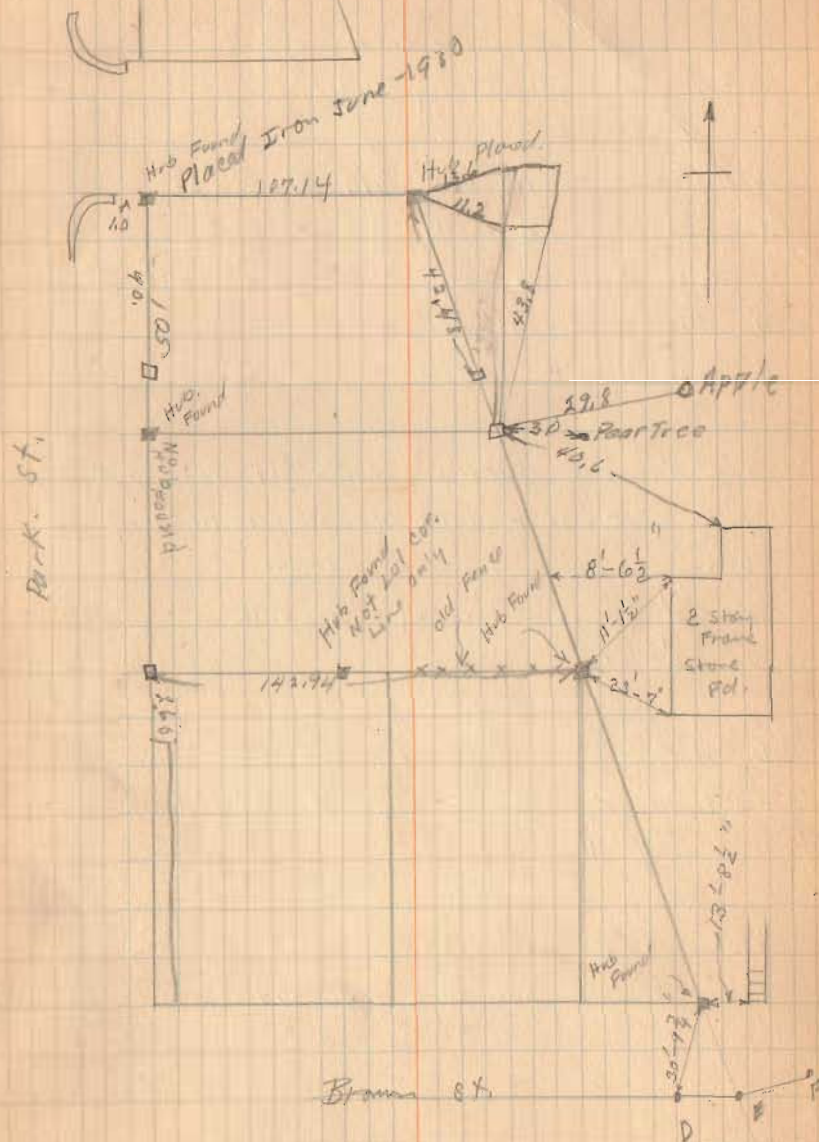 Hub Found
Placed Iron June-1930
107.14
Hub Placed.
13.6
11.2
105
40.
42.4
43.8
Hub.
Found
29.8
Apple
30
Pear Tree
40.6
Park. St.
Not Found
Hub Found
Not Lot Cor.
Line only
old Fence
Hub Found
8'-6½"
11'-1½"
2 Story
Frame
Store
Bd.
23'-7"
142.94
13'-8½"
Hub
Found
Brown St.
D
E